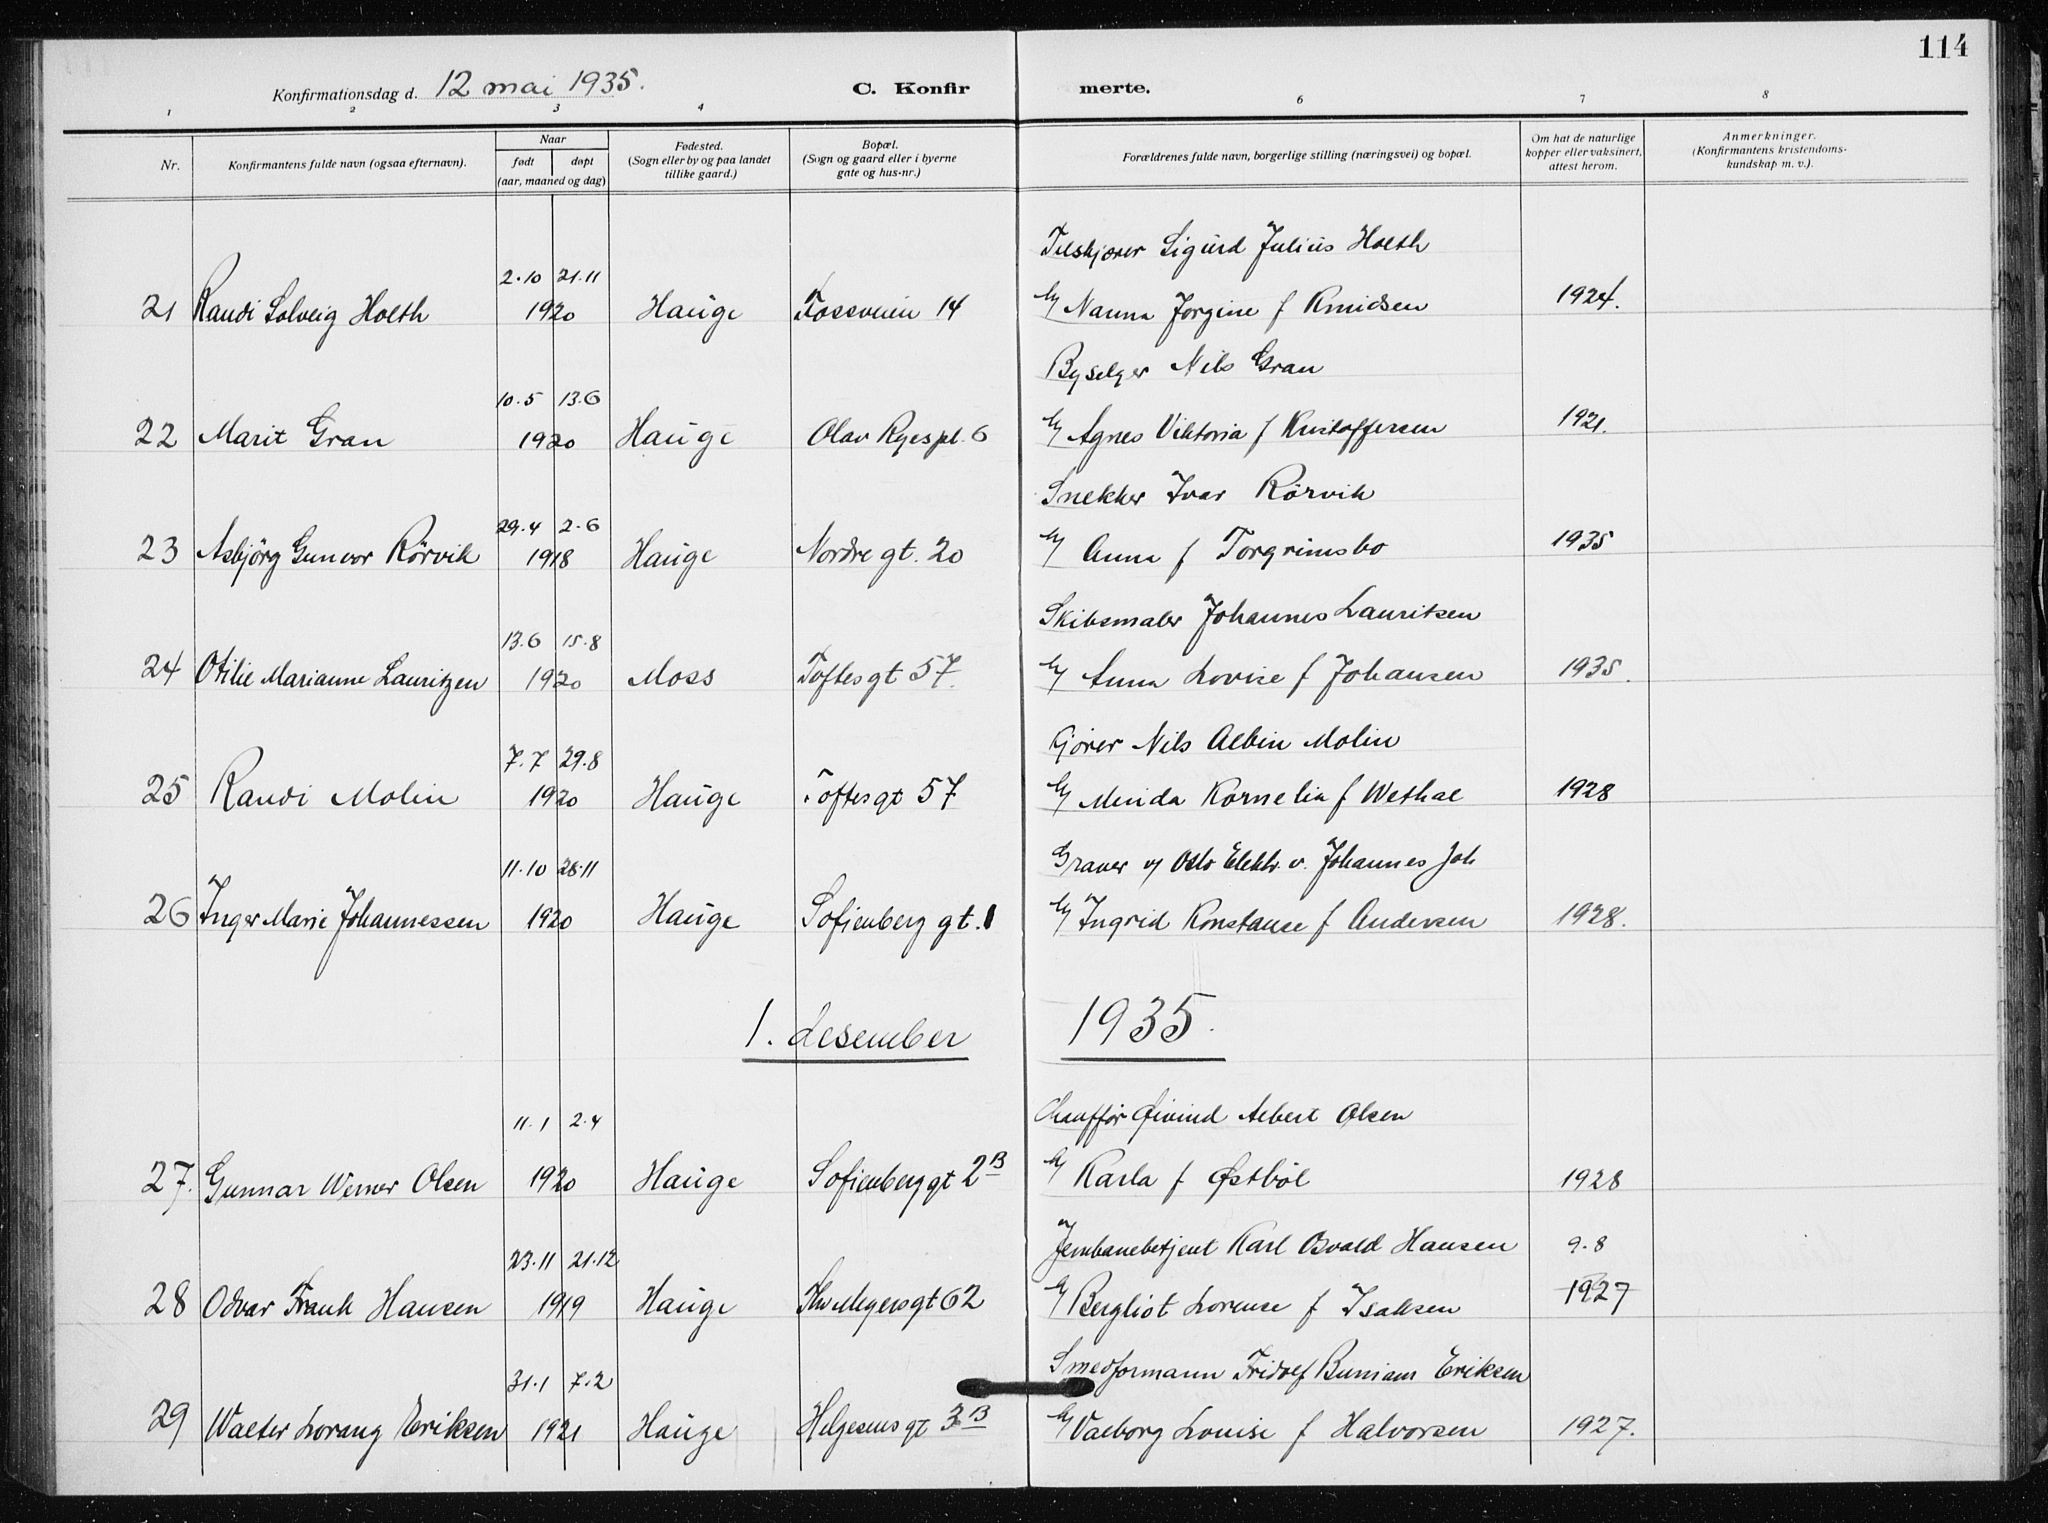 114
Konfirmationsdag d. 12 mai 1935. C. Konfirmerte.
1 2 3 4 6 7 8
Nr. Konfirmantens fulde navn (ogsaa efternavn). Naar født døpt (aar, maaned og dag) Fødested. (Sogn eller by og paa landet tillike gaard.) Bopæl. (Sogn og gaard eller i byerne gate og hus-nr.) Forældrenes fulde navn, borgerlige stilling (næringsvei) og bopæl. Om hat de naturlige kopper eller vaksinert, attest herom. Anmerkninger. (Konfirmantens kristendomskundskap m. v.).
2.10 21.11 Tilskjærer Sigurd Julius Holth
21 Randi Solveig Holth 1920 Hauge Fossveien 14 Nanna Jorgine f Knudsen 1924.
10.5 13.6 Byselger Nils Gran
22 Marit Gran 1920 Hauge Olav Ryes pl. 6 Agnes Viktoria f Kristoffersen 1921.
29.4 2.6 Snekker Ivar Rørvik
23 Asbjörg Gunvor Rörvik 1918 Hauge Nordre gt. 20 Anna f Torgrimsbo 1935
13.6 15.8 Skibsmaler Johannes Lauritsen
24 Otilie Marianne Lauritzen 1920 Moss Toftes gt 57. Anna Lovise f Johansen 1935.
7.7 29.8 Kjører Nils Albin Molin
25 Randi Molin 1920 Hauge Toftes gt 57 Minda Kornelia f Wethal 1928
11.10 28.11 Graver v/ Oslo Elektr. v. Johannes Joh
26 Inger Marie Johannessen 1920 Hauge Sofienberg gt. 1 Ingrid Konstanse f Andersen 1928.
1. desember 1935.
11.1 2.4 Chauffør Øivind Albert Olsen
27. Gunnar Werner Olsen 1920 Hauge Sofienberg gt 2B Karla f Østbøl 1928
23.11 21.12 Jernbanebetjent Karl Osvald Hansen 9.8
28 Odvar Frank Hansen 1919 Hauge Thv Meyers gt 62 Bergliot Lorense f Isaksen 1927
31.1 7.2 Smedformann Fridolf Eriksen
29 Walter Lorang Eriksen 1921 Hauge Helgesens gt 3B Valborg Louise f Halvorsen 1927.